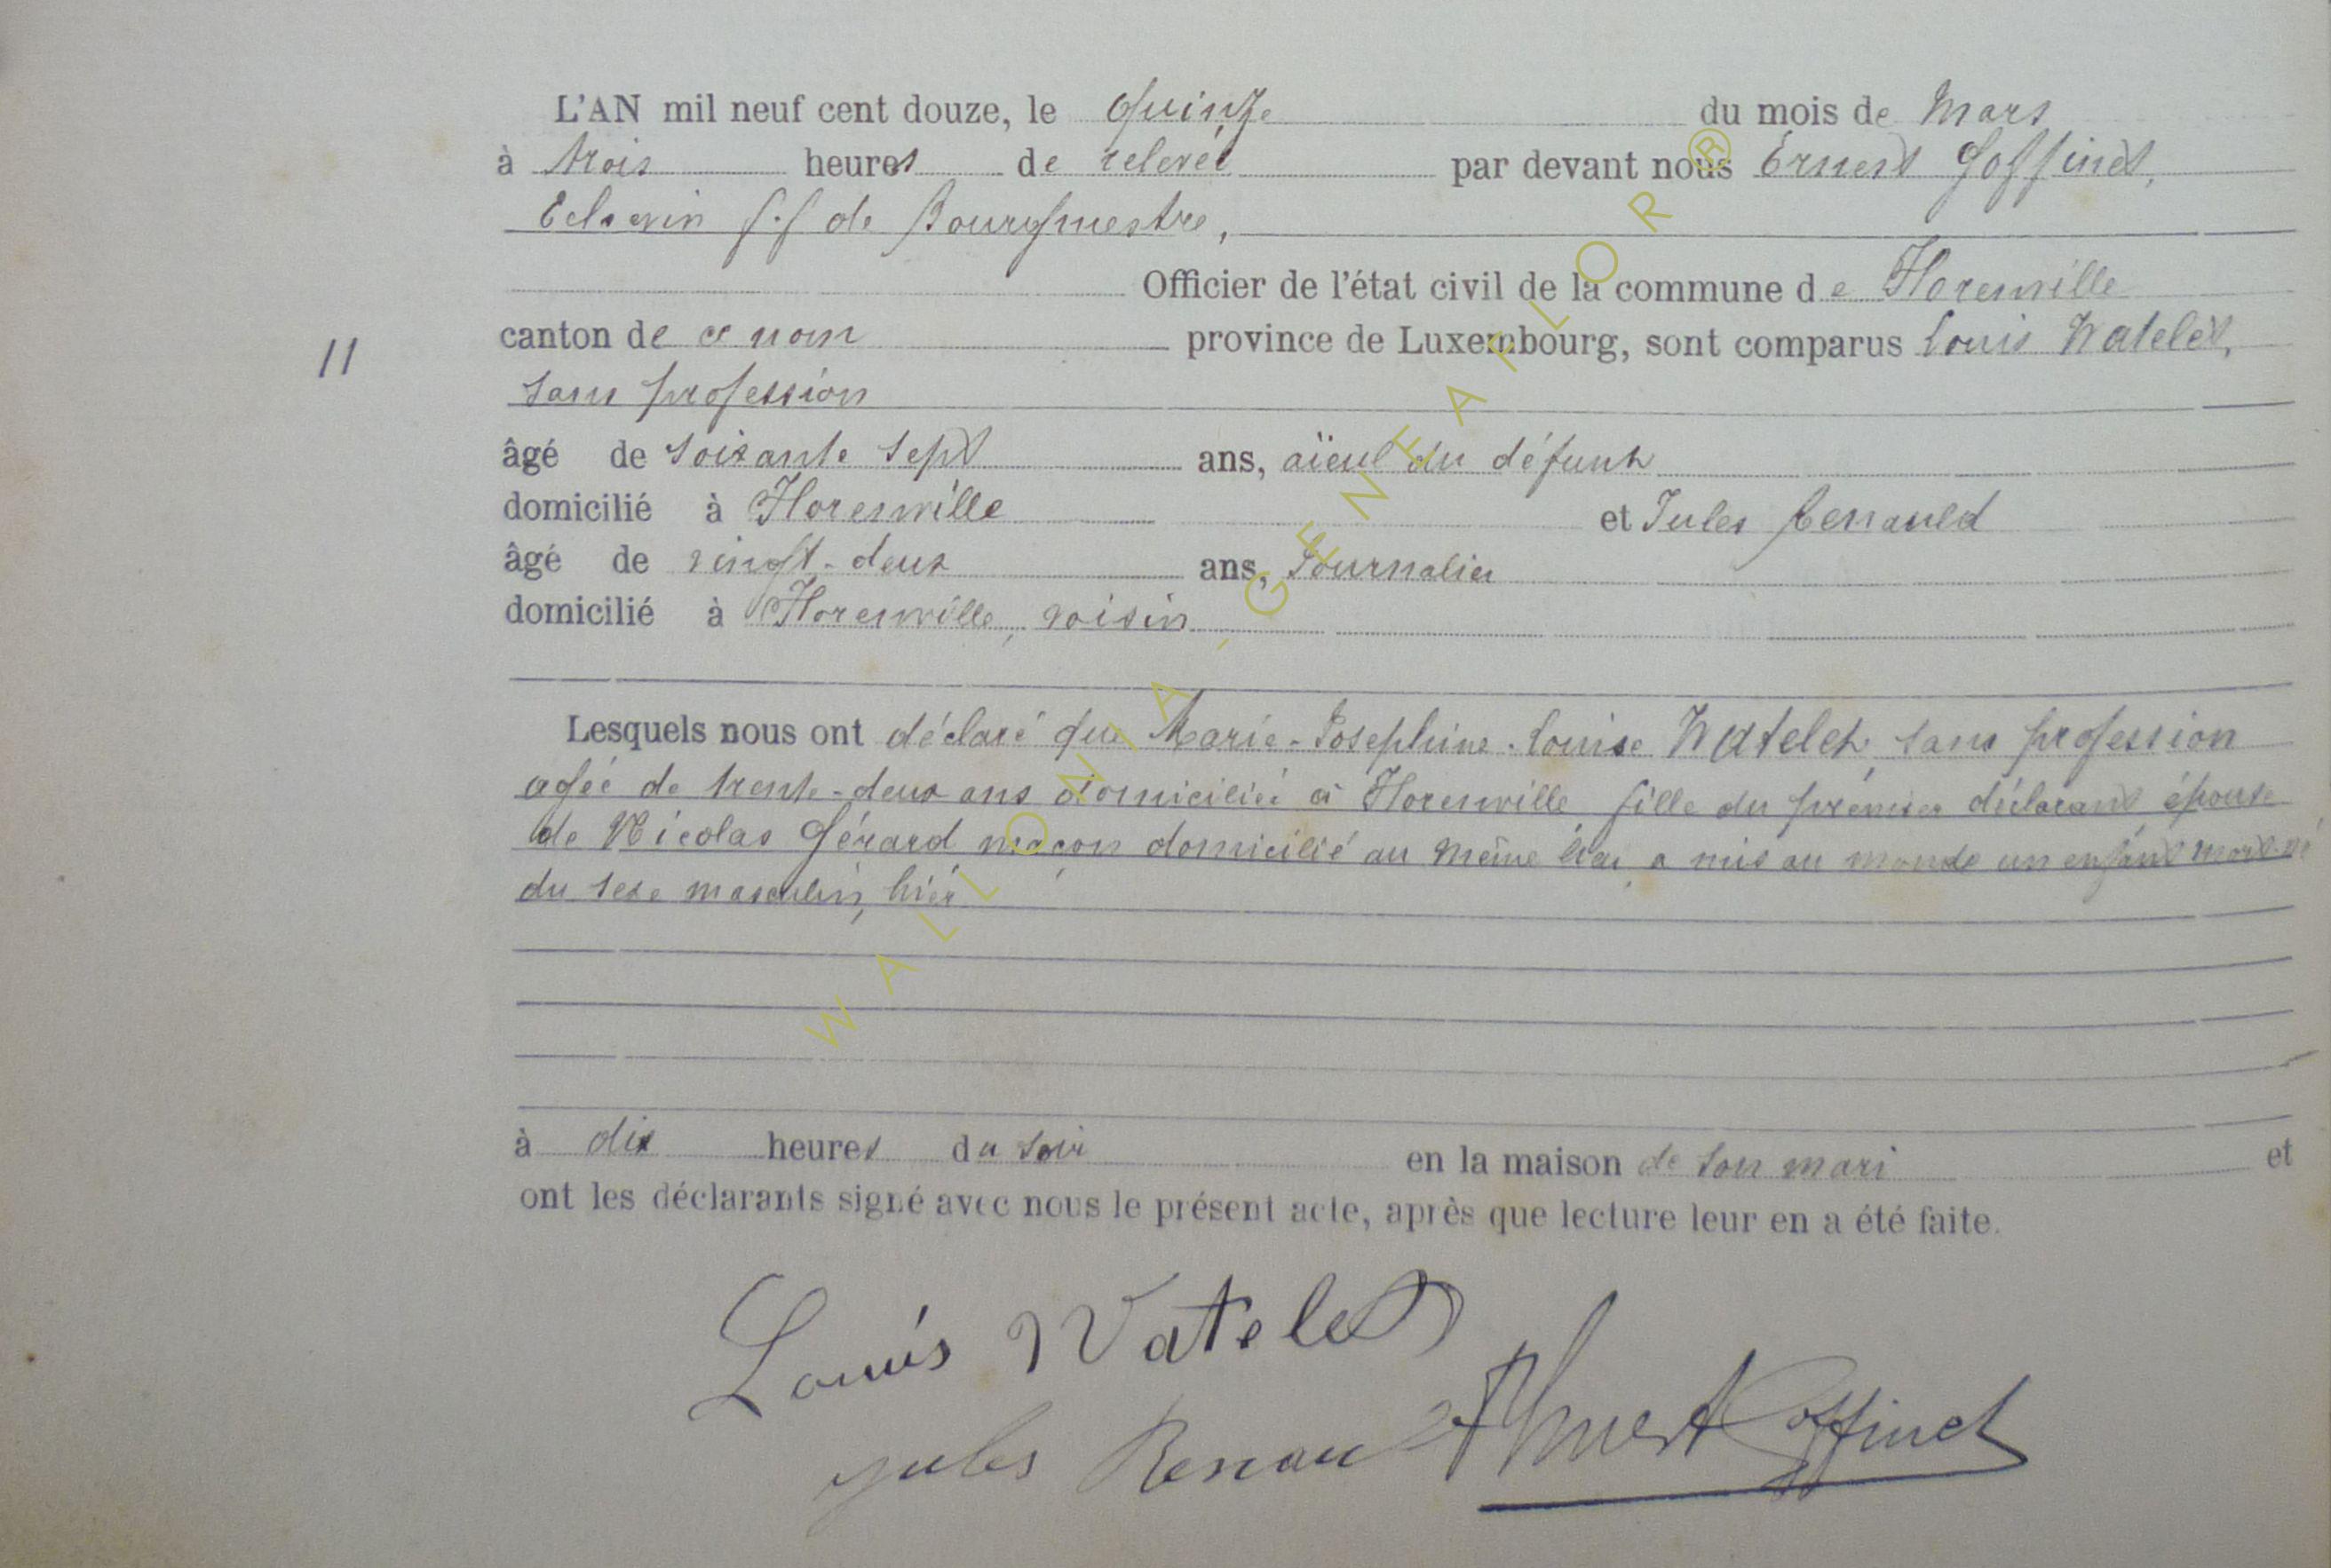 L'AN mil neuf cent douze, le quinze du mois de Mars
à trois heures de relevée par devant nous Ernest Goffinet,
Echevin f.f de Bourgmestre,
Officier de l'état civil de la commune de Florenville
11 canton de ce nom province de Luxembourg, sont comparus Louis Watelet,
sans profession
âgé de soixante sept ans, aïeul du défunt
domicilié à Florenville et Jules Renauld
âgé de vingt-deux ans, Journalier
domicilié à Florenville, voisin
Lesquels nous ont déclaré que Marie-Josephine-Louise Watelet, sans profession
agée de trente-deux ans domiciliée à Florenville, fille du premier déclarant épouse
de Nicolas Gérard maçon domicilié au même lieu, a mis au monde un enfant mort-né
du sexe masculin, hier
à dix heures du soir en la maison de son mari et
ont les déclarants signé avec nous le présent acte, après que lecture leur en a été faite.
Louis Watelet
jules Renauld Ernest Goffinet
WALLONIA-GENEAFLOR®